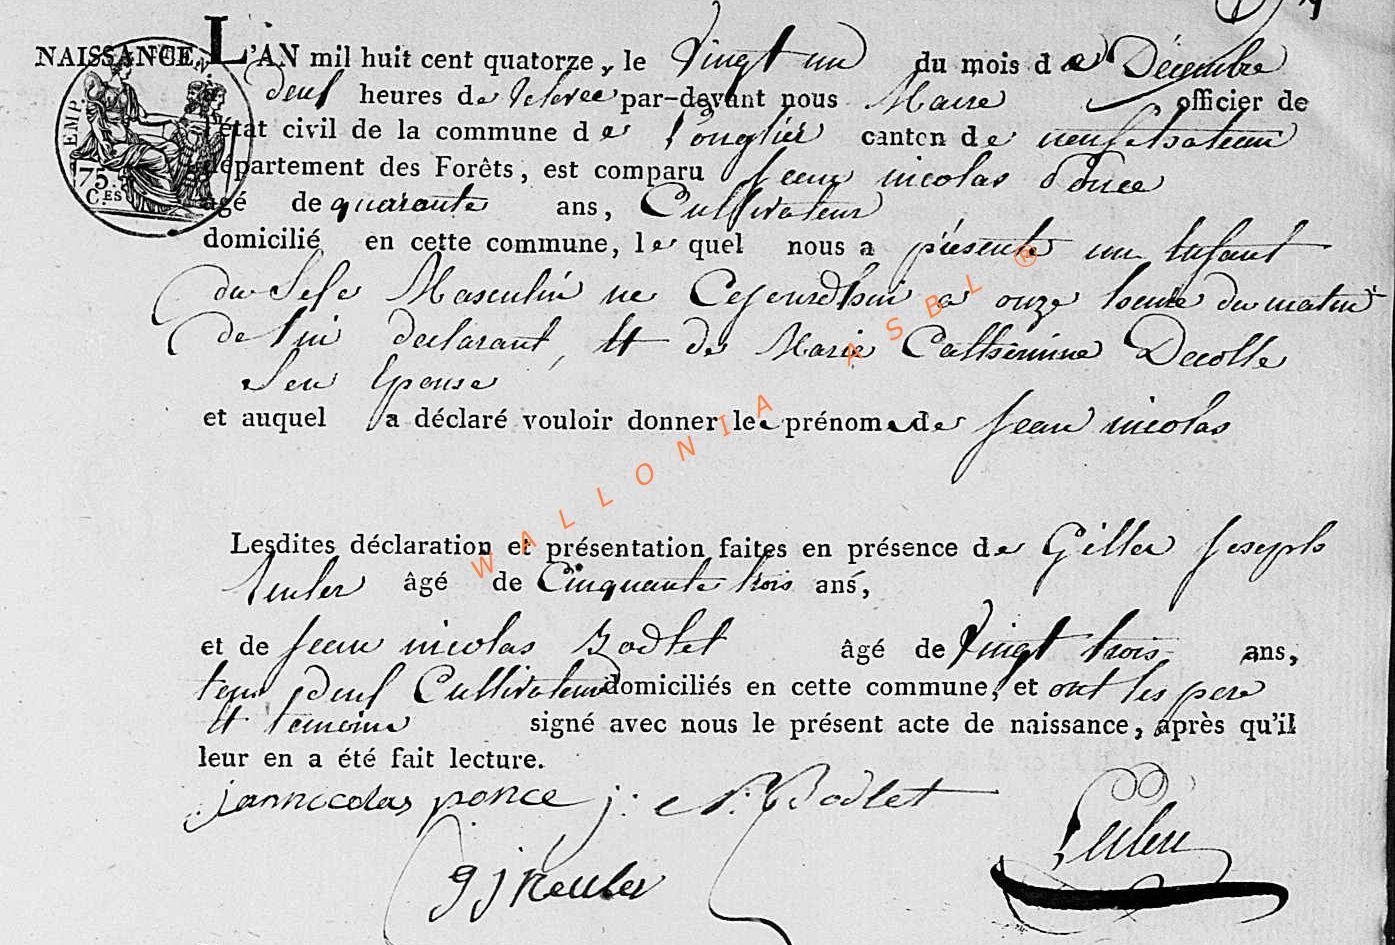 NAISSANCE. L'AN mil huit cent quatorze, le vingt un du mois de Décembre
deux heures de relevee par-devant nous Maire officier de
l'état civil de la commune de Longlier canton de neufchateau
département des Forêts, est comparu Jean nicolas Ponce
âgé de quarante ans, Cultivateur
domicilié en cette commune, lequel nous a présenté un Enfant
du Sexe Masculin ne Cejourdhui a onze heure du matin
de lui declarant, et de Marie Catherinne Decolle
Son Epouse
et auquel a déclaré vouloir donner le prénom de Jean nicolas
Lesdites déclaration et présentation faites en présence de Gille Joseph
âgé de Cinquante trois ans,
et de Jean nicolas Bodlet âgé de Vingt trois ans,
tous deux Cultivateur domiciliés en cette commune, et ont les pere
et temoins signé avec nous le présent acte de naissance, après qu'il
leur en a été fait lecture.
jannicolas ponce j: N: Bodlet
g j
EMP.
75
CES
WALLONIA ASBL ®